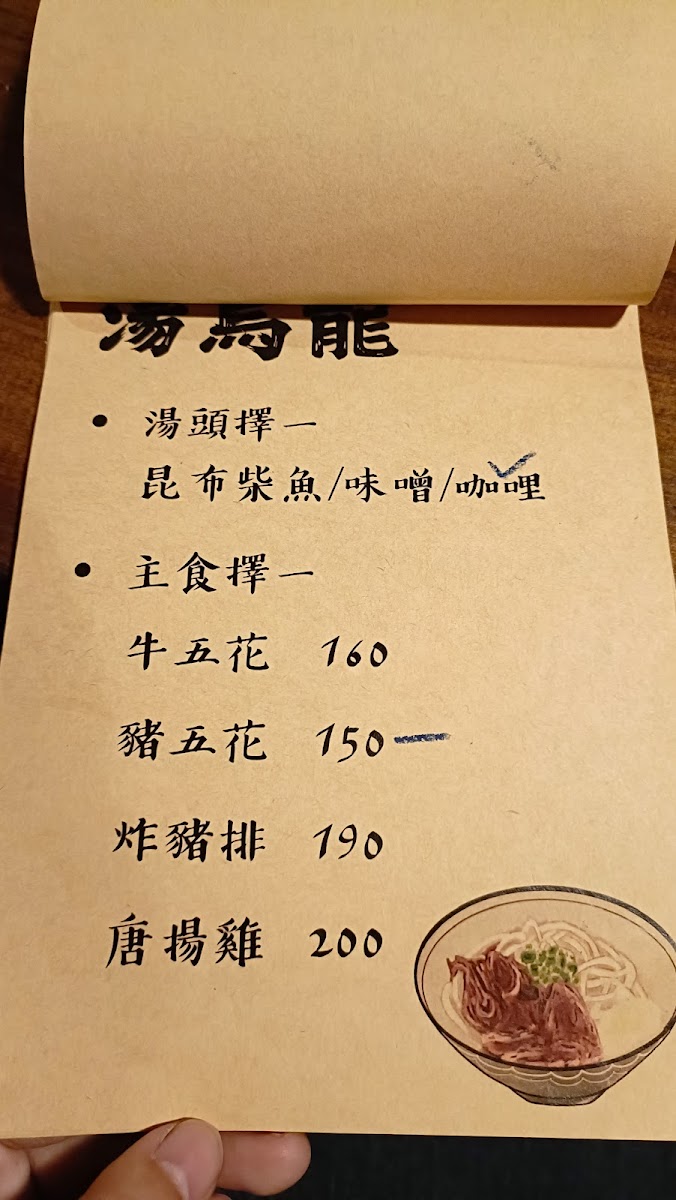 湯烏龍
• 湯頭擇一
昆布柴魚/味噌/咖哩
• 主食擇一
牛五花 160
豬五花 150
炸豬排 190
唐揚雞 200